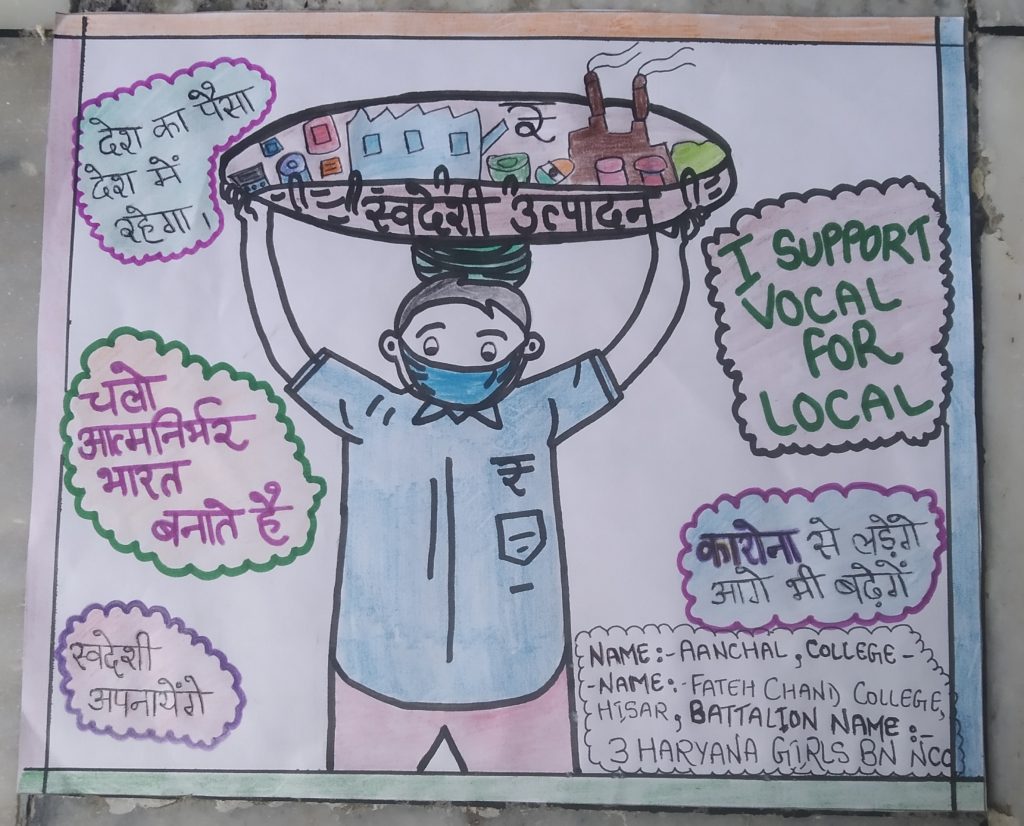 देश का पैसा
देश में
रहेगा।
₹
स्वदेशी उत्पादन
I SUPPORT
VOCAL
FOR
LOCAL
चलो
आत्मनिर्भर
भारत
बनाते है
₹
कारोना से लड़ेंगे
आगे भी बढ़ेगें
स्वदेशी
अपनायेंगे
NAME:- AANCHAL, COLLEGE-
-NAME:- FATEH CHAND COLLEGE,
HISAR, BATTALION NAME:-
3 HARYANA GIRLS BN NCC